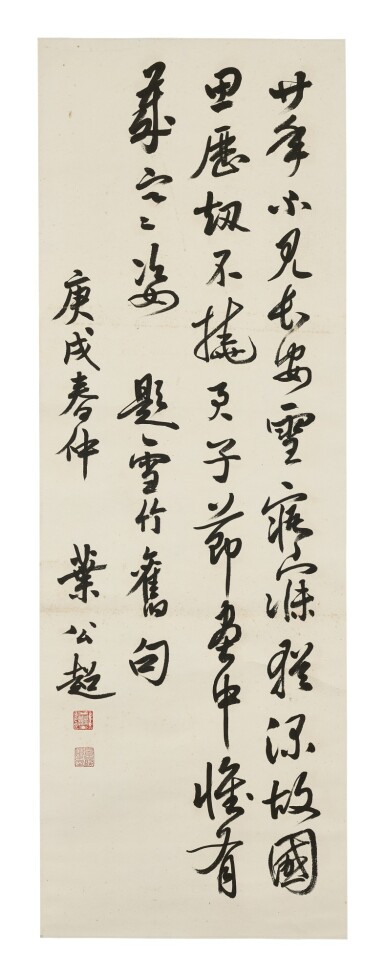 廿年不見長安雪寤寐猶深故國
思歷劫不撓君子節畫中惟有
歲寒姿　題雪竹舊句
庚戌春仲　葉公超